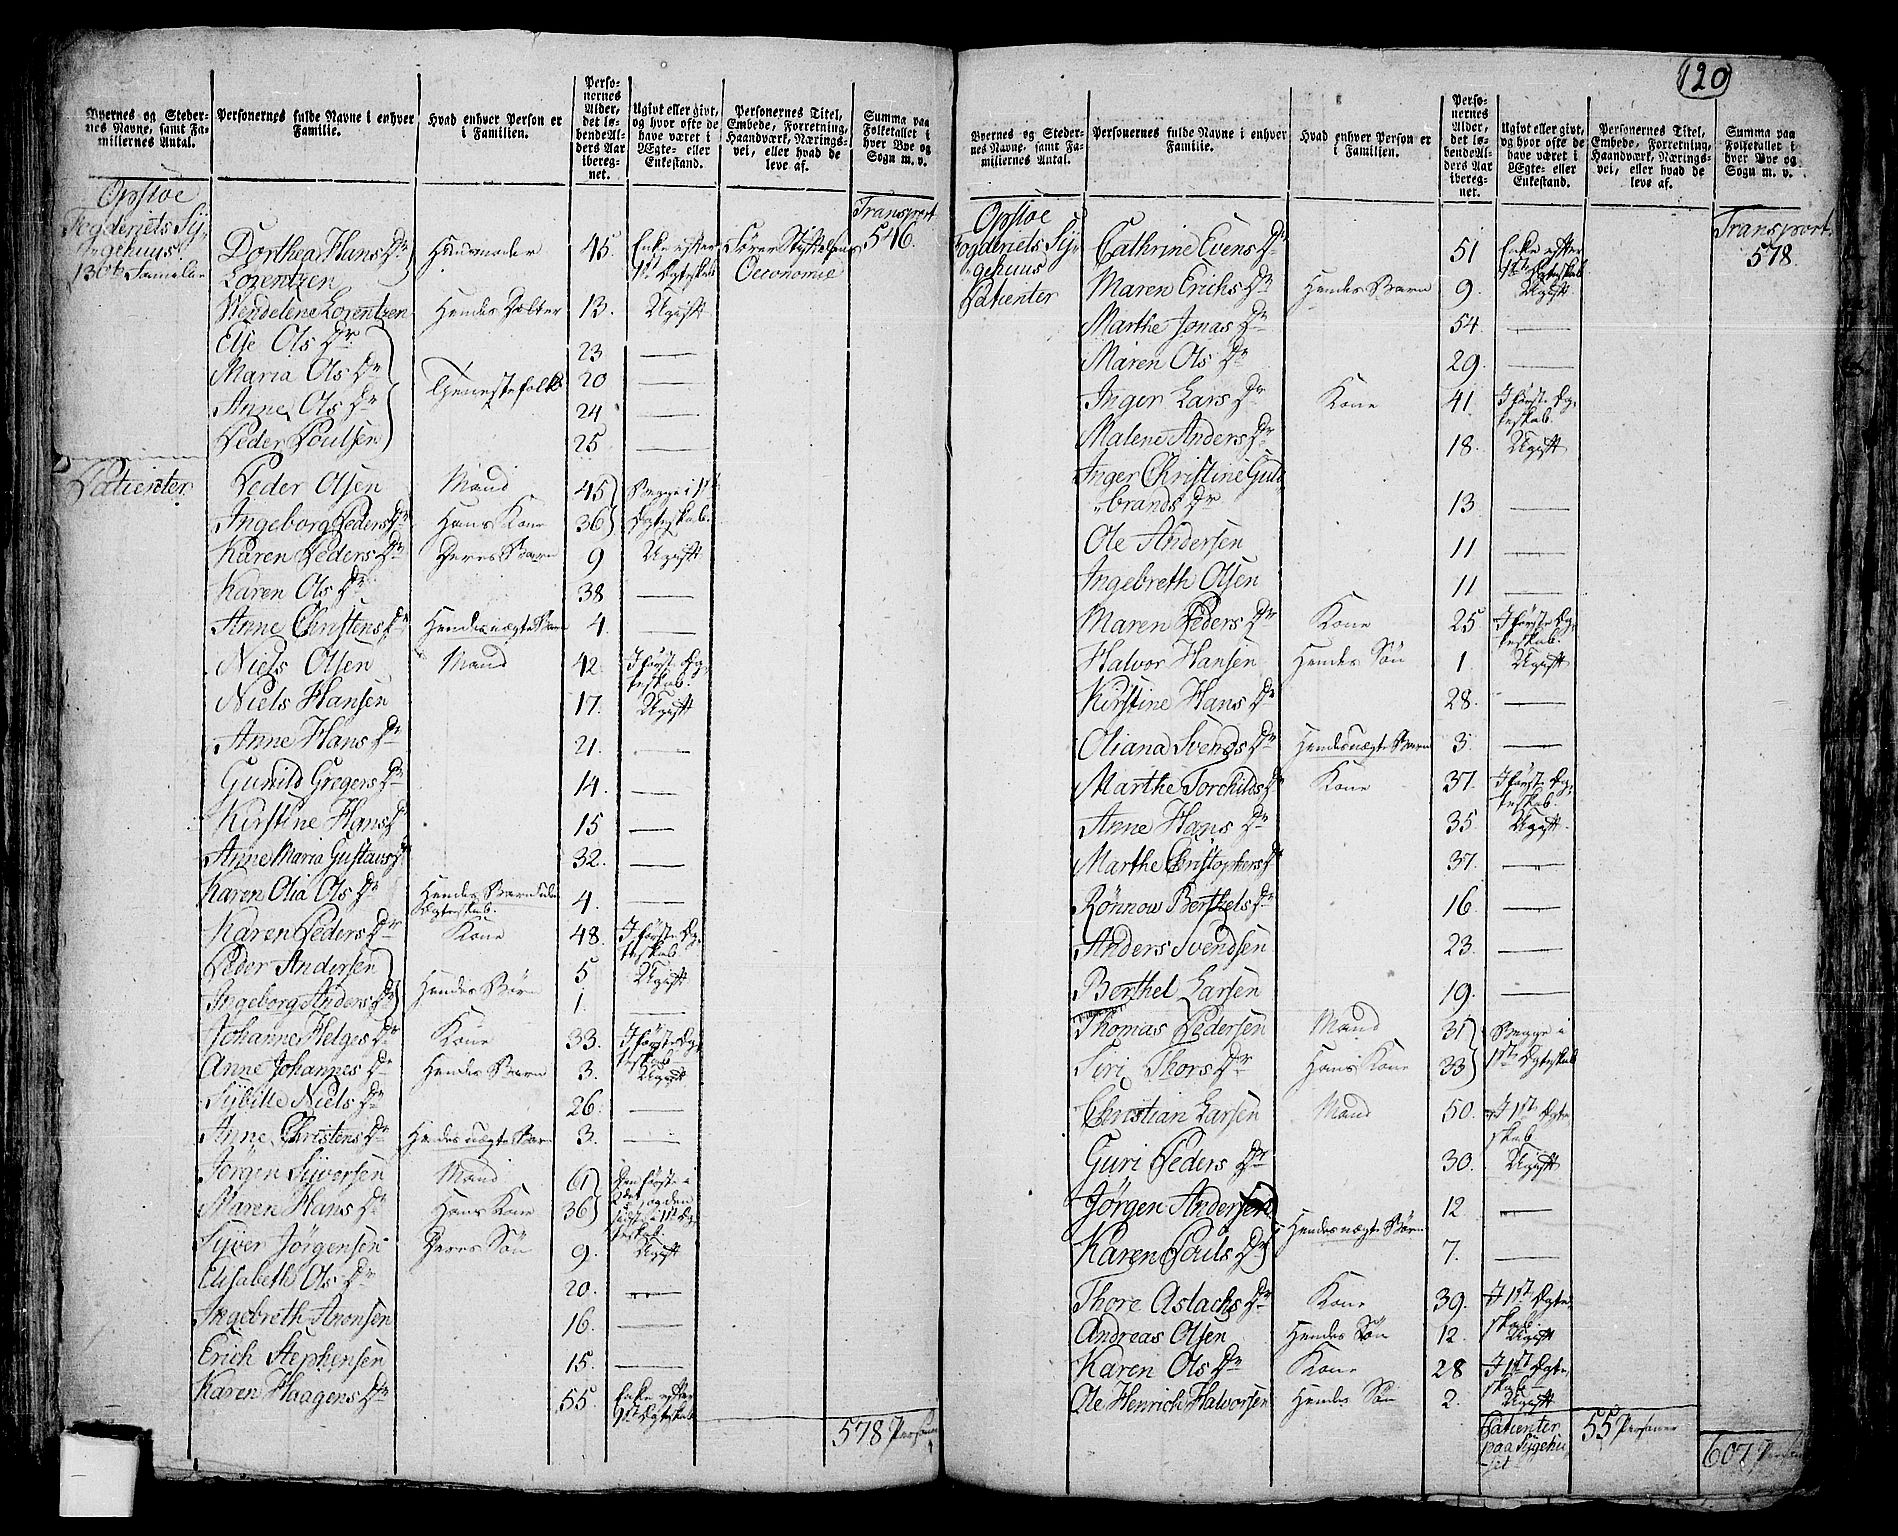 120
Byernes og Steder-
nes Navne, samt Fa-
miliernes Antal.
Personernes fulde Navne i enhver
Familie.
Hvad enhver Person er
i Familien.
Perso-
nernes
Alder,
det lø-
bende Al-
ders Aar
ibereg-
net.
Ugivt eller givt,
og hvor ofte de
have været i
Ægte- eller
Enkestand.
Personernes Titel,
Embede, Forretning,
Haandværk, Nærings-
vei, eller hvad de
leve af.
Summa paa
Folketallet i
hver Bye og
Sogn m. v.
Opsloe
Fogderiets Sy-
gehuus
Transport
546.
Dorthea Hans Dr
Lorentzen
Huusmoder 45. Enke efter
1ste Ægteskab
Oeconomie
Wendelene Lorentzen Hendes Datter 13. Ugift
Else Ols Dr 23 —
Maria Ols Dr 20 —
Tjenestefolk
Anne Ols Dr 24 —
Peder Poulsen 25 —
Patienter Peder Olsen Mand 45 Begge i 1ste
Ingeborg Peders Dr Hans Kone 36 Ægteskab.
Karen Peders Dr Deres Barn 9 Ugift
Karen Ols Dr 38 —
Anne Christens Dr Hendes uægte Barn 4. —
Niels Olsen Mand 42. I første Æg-
teskab.
Niels Hansen 17. Ugift
Anne Hans Dr 21. —
Gunild Gregers Dr 14. —
Kirstine Hans Dr 15 —
Anne Maria Gustavs Dr 32. —
Karen Olia Ols Dr Hendes Barn
Ægteskab. 4. —
Karen Peders Dr Kone 48. I første Æg-
teskab
Peder Andersen 5 Ugift
Hendes Børn
Ingeborg Anders Dr 1. —
Johanne Helges Dr Kone 33. I første Æg-
teskab
Anne Johannes Dr Hendes Barn 3. Ugift
Sybille Niels Dr 26. —
Anne Christens Dr Hendes uægte Barn 3. —
Jørgen Syversen Mand 61 Den første i
2det og den
Maren Hans Dr Hans Kone 36 sidste i 1st Æg-
teskab
Syver Jørgensen Deres Søn 9. Ugift
Elisabeth Ols Dr 20. —
Ingebreth Aronsen 16. —
Erich Stephensen 15. —
Karen Haagens Dr 55. Enke efter
1st Ægteskab
578 Personer
Byernes og Steder-
nes Navne, samt Fa-
miliernes Antal.
Personernes fulde Navne i enhver
Familie.
Hvad enhver Person er
i Familien.
Perso-
nernes
Alder,
det lø-
bende Al-
ders Aar
ibereg-
net.
Ugivt eller givt,
og hvor ofte de
have været i
Ægte- eller
Enkestand.
Personernes Titel,
Embede, Forretning,
Haandværk, Nærings-
vei, eller hvad de
leve af.
Summa paa
Folketallet i
hver Bye og
Sogn m. v.
Opsloe
Fogderiets Sy-
gehuus
Patienter
Transport.
578.
Cathrine Evens Dr 51 Enke efter
1ste Ægteskab
Maren Erichs Dr Hendes Barn 9. Ugift
Marthe Jonas Dr 54. —
Maren Ols Dr 29. —
Inger Lars Dr Kone 41 I første Æg-
teskab.
Malene Anders Dr 18. Ugift
Inger Christine Gul-
brands Dr 13 —
Ole Andersen 11 —
Ingebreth Olsen 11 —
Maren Peders Dr Kone 25 I første Æg-
teskab.
Halvor Hansen Hendes Søn 1. Ugift
Kirstine Hans Dr 28. —
Oliana Svends Dr Hendes uægte Barn 3. —
Marthe Torchilds Dr Kone 37. I første Æg-
teskab.
Anne Hans Dr 35. Ugift
Marthe Christophers Dr 37. —
Rönnow Berthels Dr 16 —
Anders Svendsen 23. —
Berthel Larsen 19. —
Thomas Pedersen Mand 31 Begge i
Siri Thors Dr Hans Kone 33 1ste Ægteskab
Christian Larsen Mand 50. I 1ste Ægte-
skab
Guri Peders Dr 30. Ugift
Jørgen Andersen 12 —
Hendes uægte Børn
Karen Pouls Dr 7. —
Thore Aslachs Dr Kone 39. I 1st Ægte-
skab.
Andreas Olsen Hendes Søn 12. Ugift
Karen Ols Dr Kone 28 I 1st Ægte-
skab
Ole Henrich Halvorsen Hendes Søn 2. Ugift
Patienter
paa Sygehu-
set
55 Personer
607 Personer